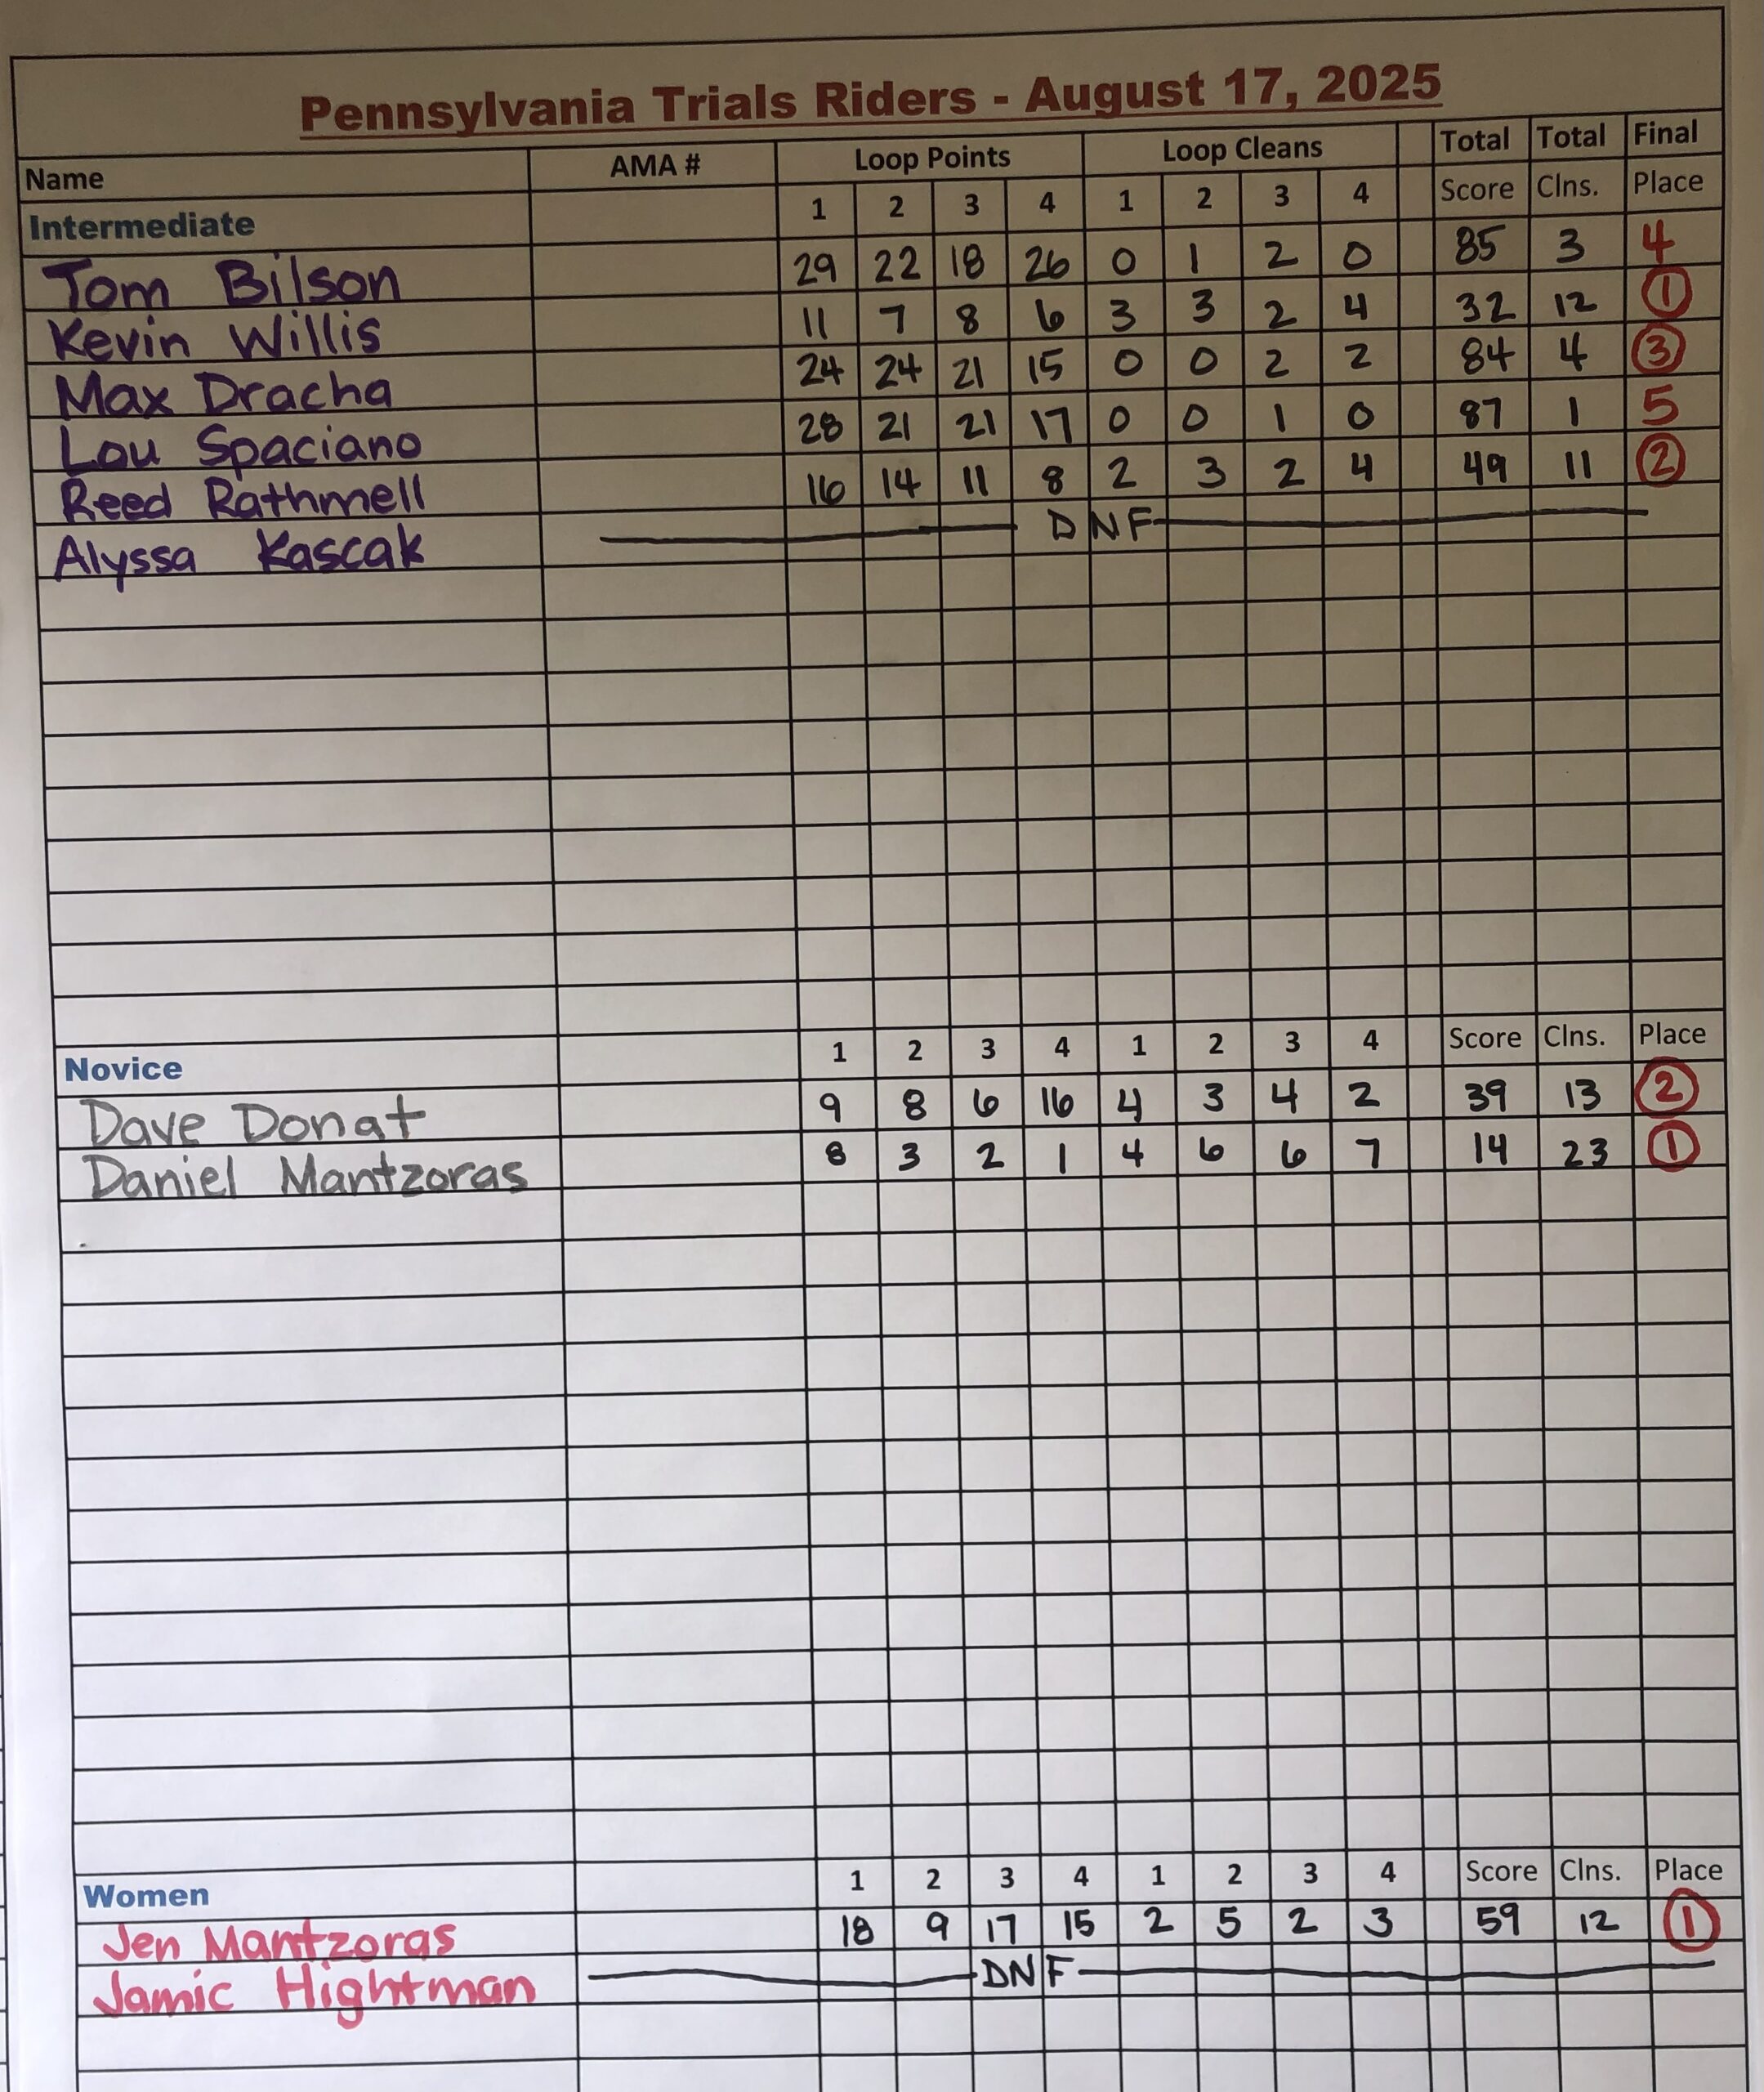 Pennsylvania Trials Riders - August 17, 2025
Name AMA # Loop Points Loop Cleans Total Total Final
Intermediate 1 2 3 4 1 2 3 4 Score Clns. Place
Tom Bilson 29 22 18 26 0 1 2 0 85 3 4
Kevin Willis 11 7 8 6 3 3 2 4 32 12 1
Max Dracha 24 24 21 15 0 0 2 2 84 4 3
Lou Spaciano 28 21 21 17 0 0 1 0 87 1 5
Reed Rathmell 16 14 11 8 2 3 2 4 49 11 2
Alyssa Kascak DNF
Novice 1 2 3 4 1 2 3 4 Score Clns. Place
Dave Donat 9 8 6 16 4 3 4 2 39 13 2
Daniel Mantzoras 8 3 2 1 4 6 6 7 14 23 1
Women 1 2 3 4 1 2 3 4 Score Clns. Place
Jen Mantzoras 18 9 17 15 2 5 2 3 59 12 1
Jamic Hightman DNF